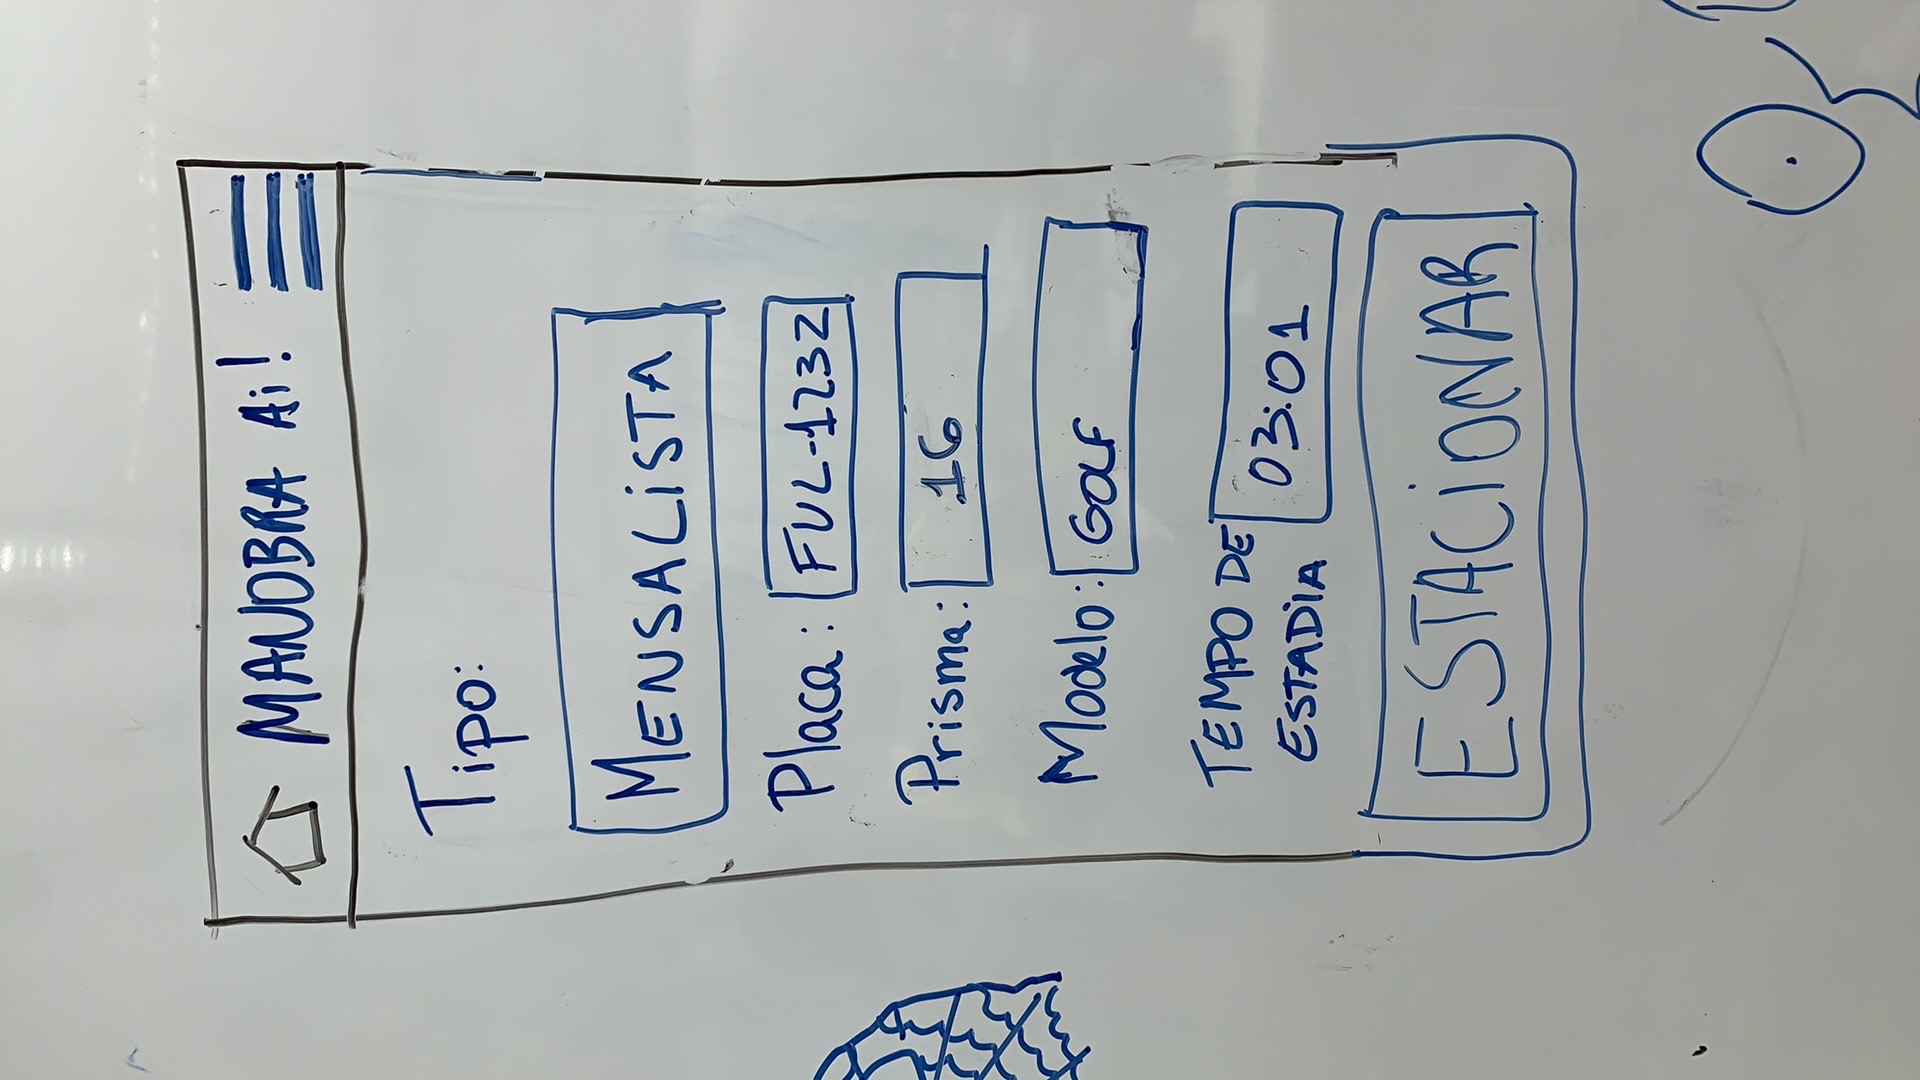 MANOBRA Ai!
Tipo:
MENSALiSTA
Placa: FUL-1232
Prisma: 16
Modelo: GOLF
TEMPO DE
ESTADiA 03:01
ESTACiONAR